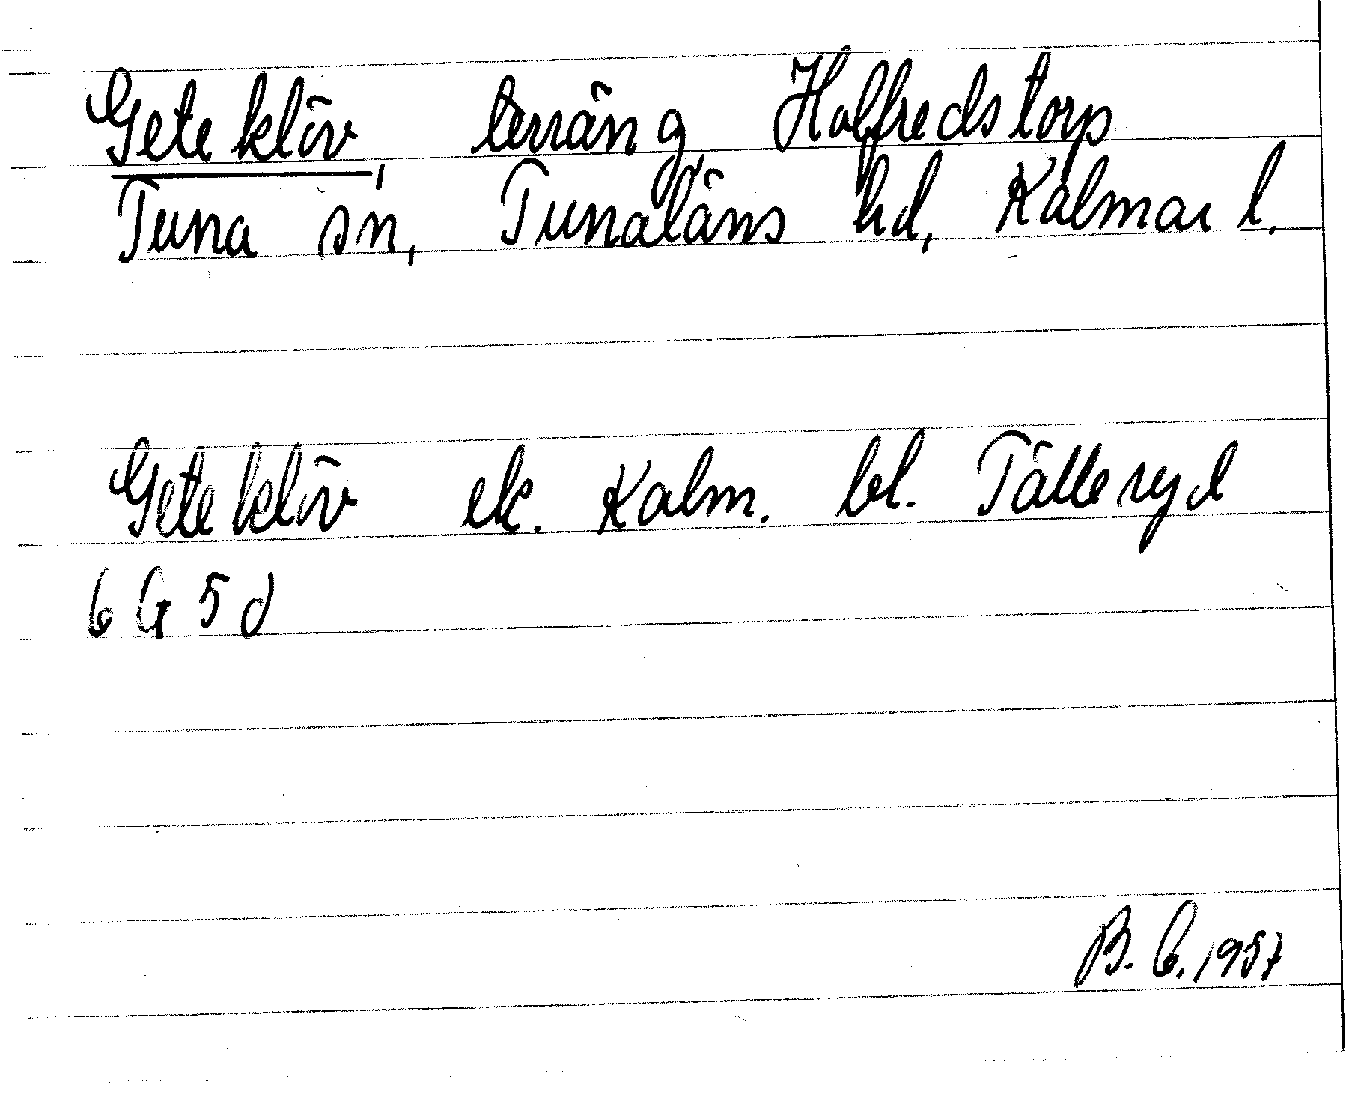 Geteklöv, terräng, Holfredstorp
Tuna sn, Tunaläns hd, Kalmar l.
Geteklöv ek. Kalm. bl. Tålleryd
6 G 5 d
B. C. 1957